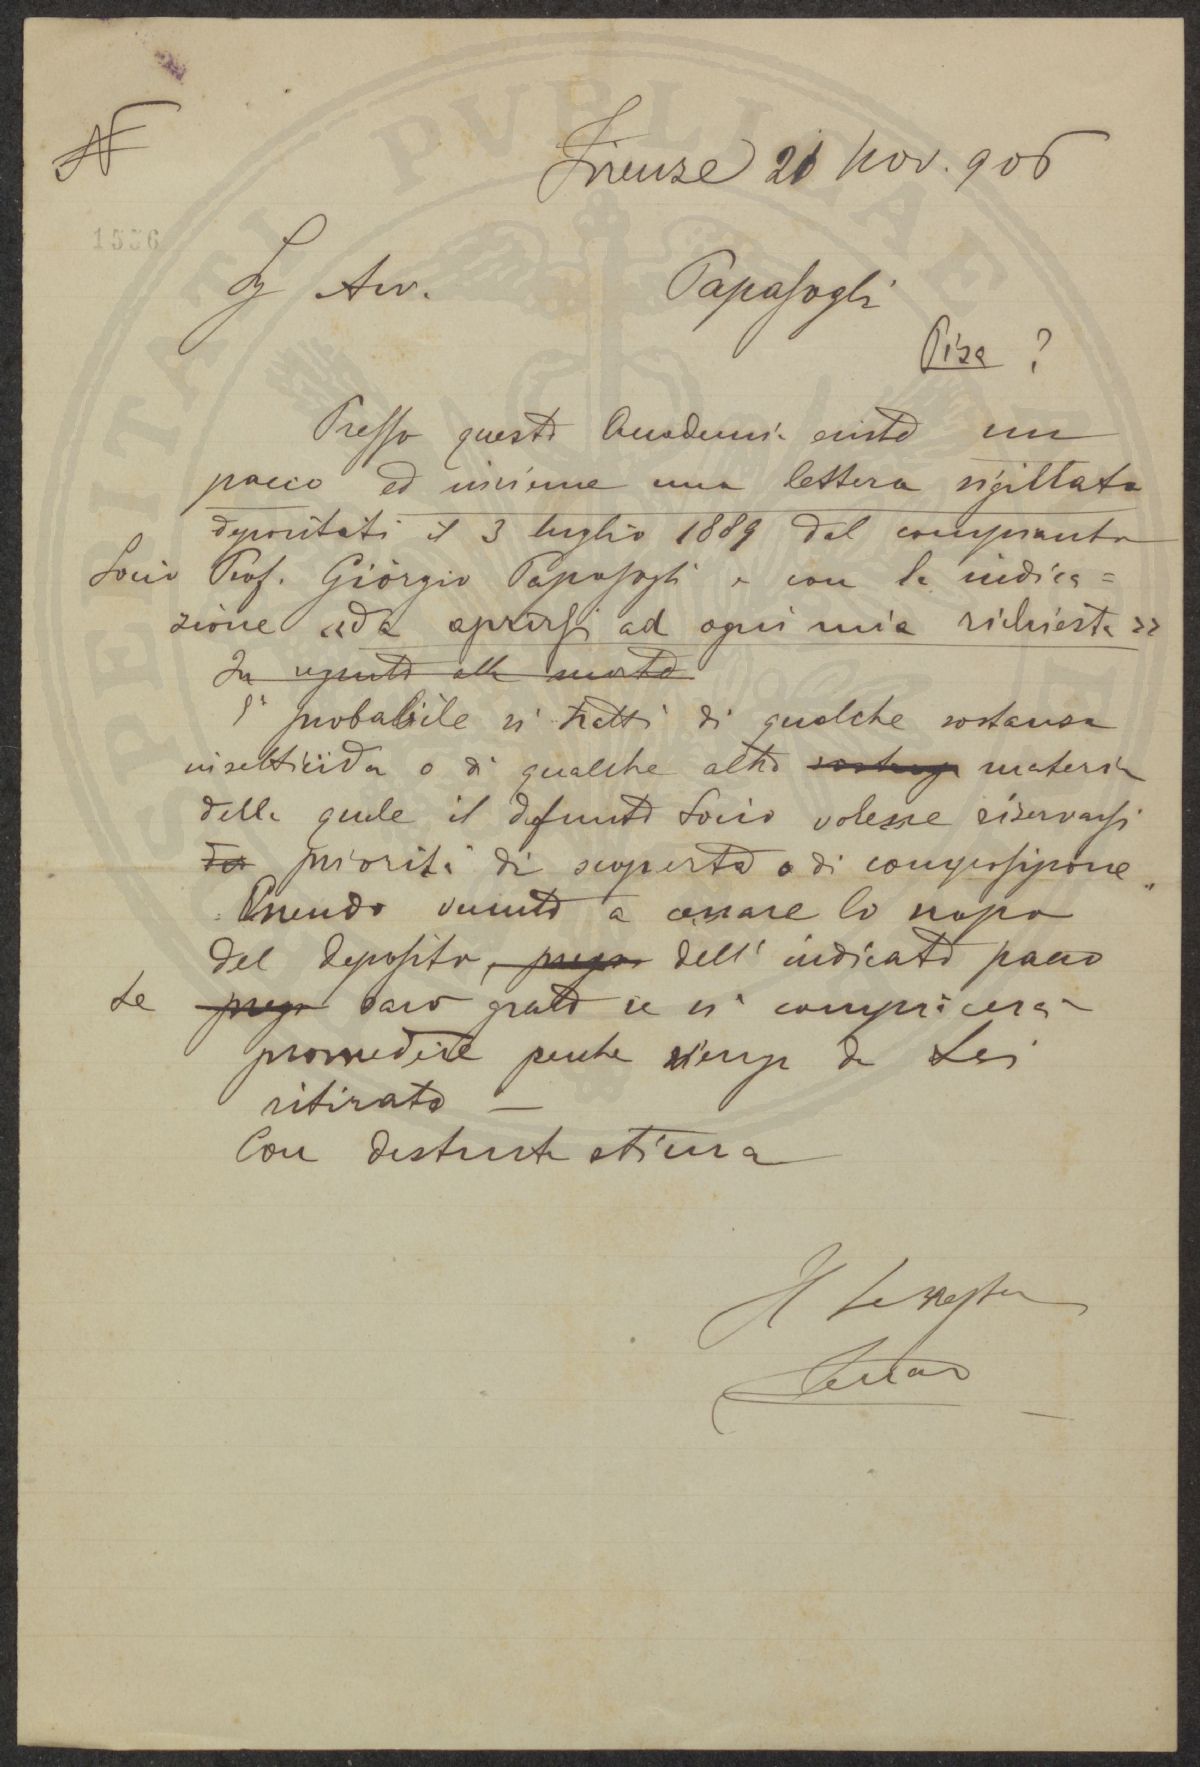 N
Firenze 21 Nov. 906
1556
Sg Avv. Papasogli
Pisa ?
Presso questa Accademia existe un
pacco ed insieme una lettera sigillata
depositati il 3 luglio 1889 dal compianto
Socio Prof. Giorgio Papasogli e con la indica=
zione «da aprirsi ad ogni mia richiesta»
In seguito alla morte
È probabile si tratti di qualche sostanza
insetticida o di qualche altra sostanza materia
della quale il defunto Socio volesse riservarsi
priorità di scoperta o di composizione.
Essendo venuto a cessare lo scopo
del deposito, prego dell' indicato pacco
Le prego sarò grato se si compiacerà
provvedere perche venga da Lei
ritirato —
Con distinta stima
Il Segretar